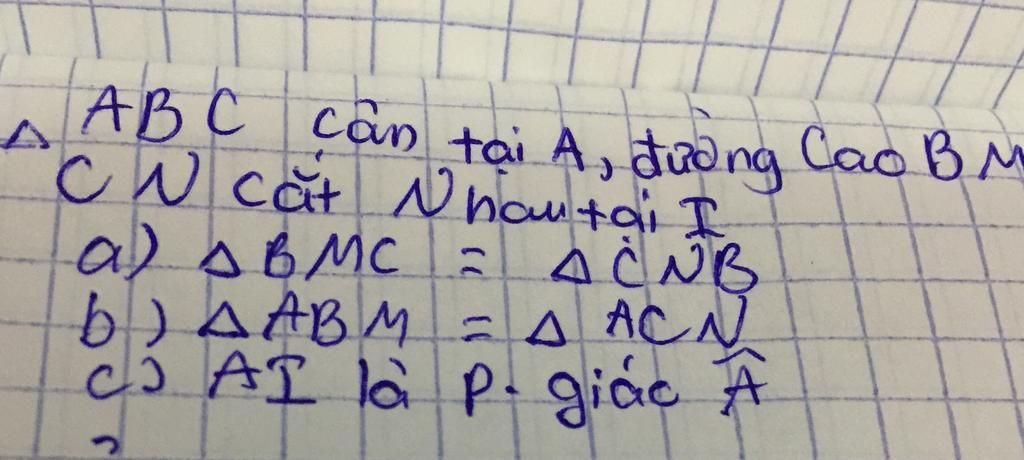 Δ ABC cân tại A, đường Cao BM
CN cắt Nhau tại I
a) Δ BMC = Δ CNB
b) Δ ABM = Δ ACN
c) AI là p. giác Â